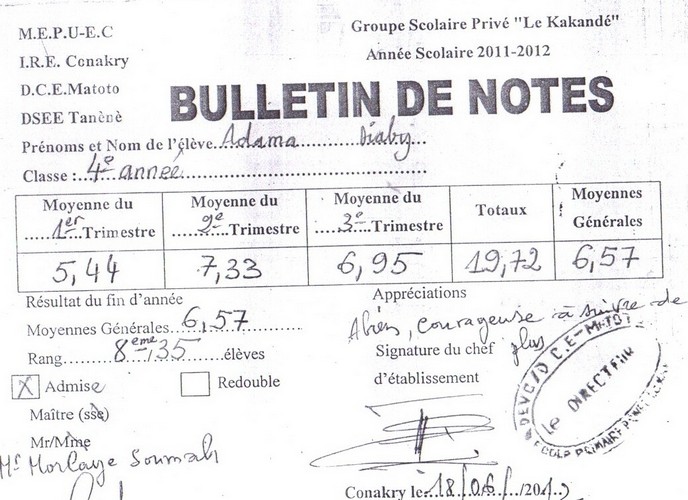 M.E.P.U-E.C
Groupe Scolaire Privé "Le Kakandé"
I.R.E. Conakry
Année Scolaire 2011-2012
D.C.E.Matoto
DSEE Tanènè
BULLETIN DE NOTES
Prénoms et Nom de l'élève...Adama Diaby
Classe :...4e année
Moyenne du 1er Trimestre
Moyenne du 2e Trimestre
Moyenne du 3e Trimestre
Totaux
Moyennes Générales
5,44 7,33 6,95 19,72 6,57
Résultat du fin d'année
Appréciations
Moyennes Générales...6,57
courageuse à suivre de plus
Rang...8eme/35...élèves
Signature du chef d'établissement
X Admise
Redouble
Maître (sse)
Mr/Mme
Mr Morlaye Soumah
LE DIRECTEUR
Conakry le...18/06/2012